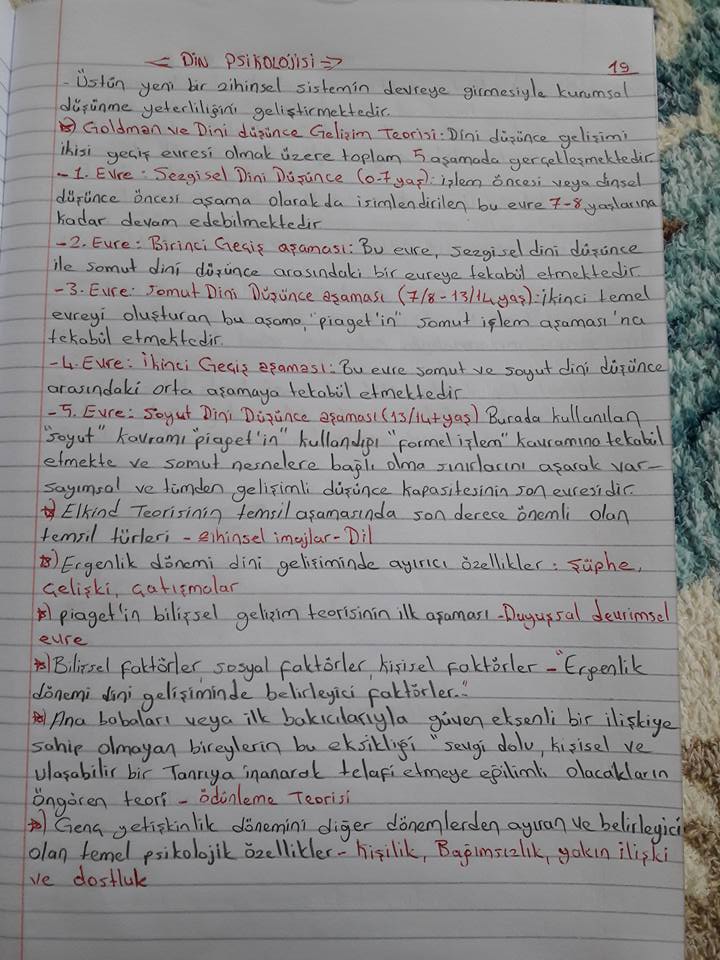 <- DİN PSİKOLOJİSİ -> 19
- Üstün yeni bir zihinsel sistemin devreye girmesiyle kurumsal
düşünme yeterliliğini geliştirmektedir.
*) Goldman ve Dini düşünce Gelişim Teorisi: Dini düşünce gelişimi
ikisi geçiş evresi olmak üzere toplam 5 aşamada gerçekleşmektedir.
-1. Evre: Sezgisel Dini Düşünce (0-7 yaş): işlem öncesi veya dinsel
düşünce öncesi aşama olarakda isimlendirilen bu evre 7-8 yaşlarına
kadar devam edebilmektedir
-2. Evre: Birinci Geçiş aşaması: Bu evre, sezgisel dini düşünce
ile somut dini düşünce arasındaki bir evreye tekabül etmektedir
-3. Evre: Somut Dini Düşünce aşaması (7/8-13/14 yaş): ikinci temel
evreyi oluşturan bu aşama, "piaget'in" somut işlem aşaması'na
tekabül etmektedir.
-4. Evre: İkinci Geçiş aşaması: Bu evre somut ve soyut dini düşünce
arasındaki orta aşamaya tekabül etmektedir
-5. Evre: Soyut Dini Düşünce aşaması (13/14+yaş) Burada kullanılan
"soyut" kavramı "piaget'in" kullandığı "formel işlem" kavramına tekabül
etmekte ve somut nesnelere bağlı olma sınırlarını aşarak var-
sayımsal ve tümden gelişimli düşünce kapasitesinin son evresidir.
*) Elkind Teorisinin temsil aşamasında son derece önemli olan
temsil türleri - zihinsel imajlar - Dil
*) Ergenlik dönemi dini gelişiminde ayırıcı özellikler: şüphe,
çelişki, çatışmalar
*) piaget'in bilişsel gelişim teorisinin ilk aşaması - Duyuşsal devrimsel
evre
*) Bilişsel faktörler, sosyal faktörler, kişisel faktörler - "Ergenlik
dönemi dini gelişiminde belirleyici faktörler."
*) Ana babaları veya ilk bakıcılarıyla güven eksenli bir ilişkiye
sahip olmayan bireylerin bu eksikliği "sevgi dolu, kişisel ve
ulaşabilir bir Tanrıya inanarak telafi etmeye eğilimli olacakların
öngören teori - ödünleme Teorisi
*) Genç yetişkinlik dönemini diğer dönemlerden ayıran ve belirleyici
olan temel psikolojik özellikler - Kişilik, Bağımsızlık, yakın ilişki
ve dostluk